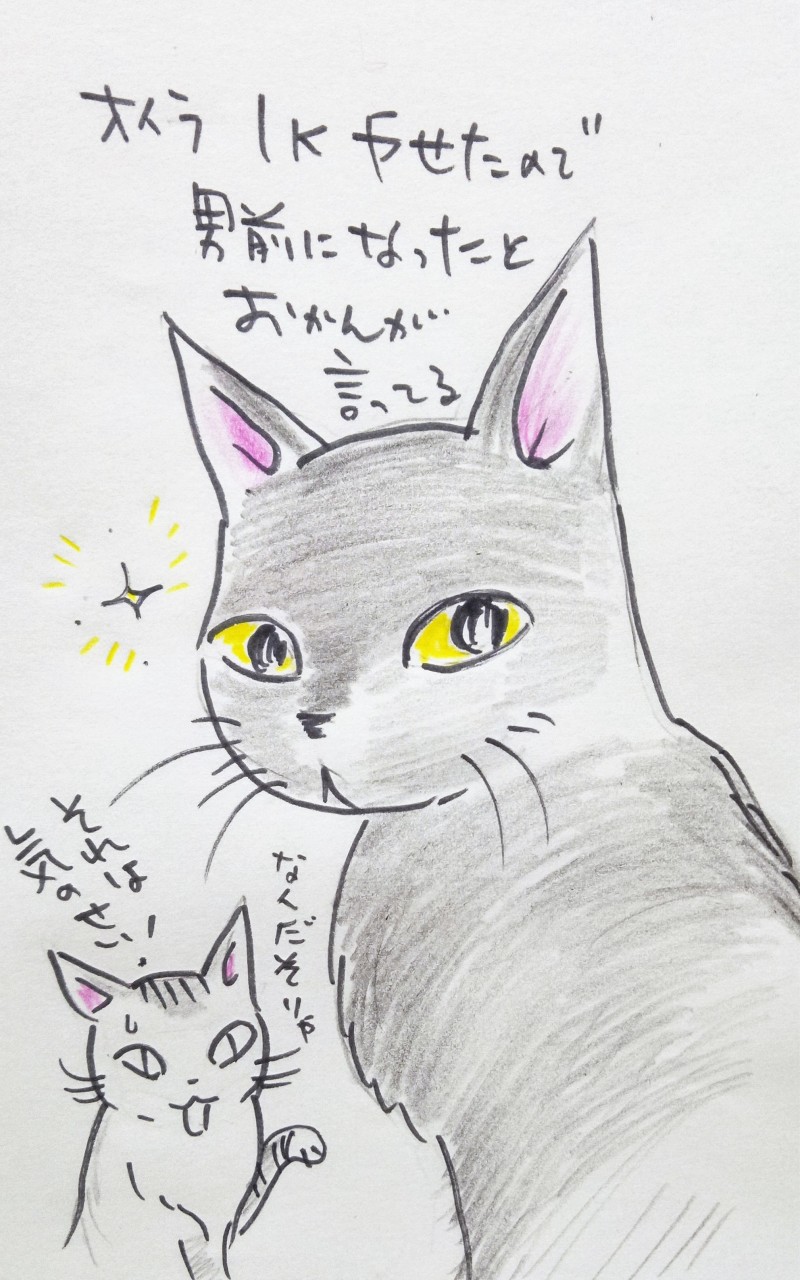 オイラ 1K やせたので
男前になったこと
おかんが
言ってる
それは
気のせい!
なんだそりゃ